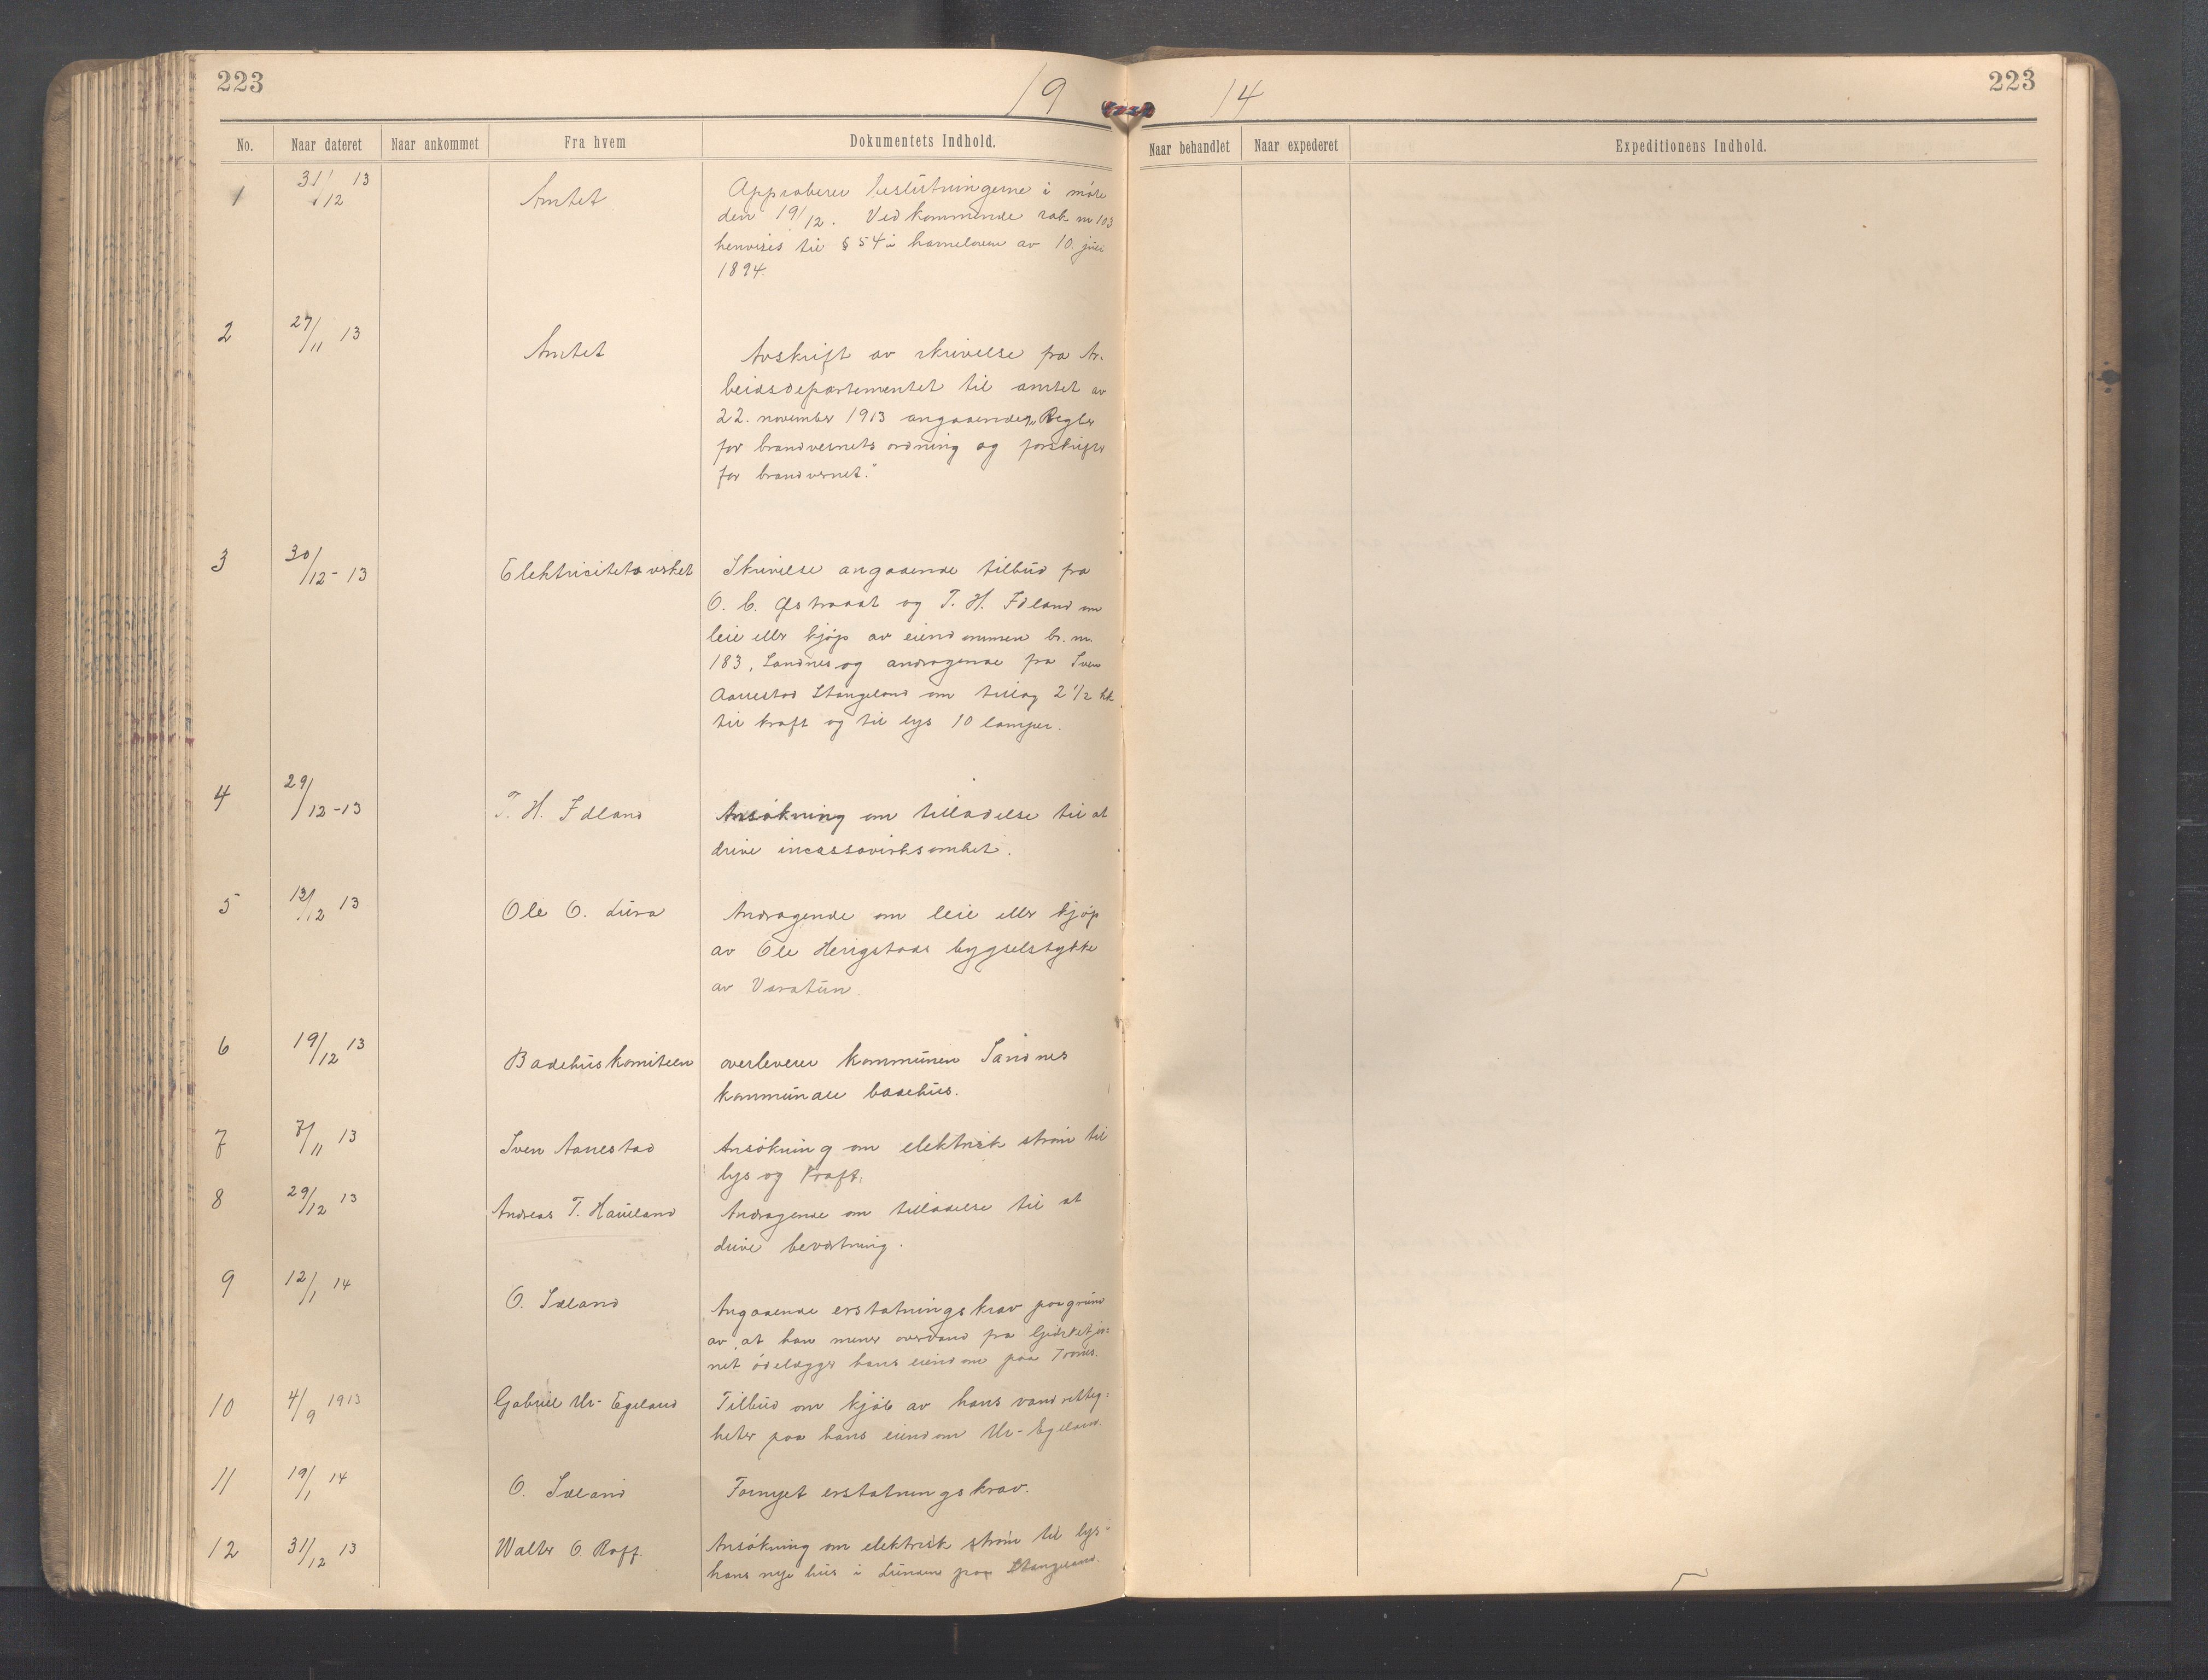 223
19
14
223
No.
Naar dateret
Naar ankommet
Fra hvem
Dokumentets Indhold.
Naar behandlet
Naar expederet
Expeditionens Indhold.
1
31/12 13
Amtet
Approberer beslutningerne i möte
den 19/12. Vedkommende sak nr 103
henvises til § 54 i havneloven av 10. juli
1894.
2
27/11 13
Amtet
Avskrift av skrivelse fra Ar-
beidsdepartementet til amtet av
22. november 1913 angaaende „Regler
for brandvernets ordning og forskrifter
for brandvernet."
3
30/12 - 13
Elektricitetsverket
Skrivelse angaaende tilbud fra
O. C. Østraat og T. H. Idland om
leie eller kjöp av eiendommen br. nr.
183, Sandnes og andragende fra Sven
Aanestad Stangeland om tillæg 2 1/2 hk
til kraft og til lys 10 lamper.
4
29/12 - 13
T. H. Idland
Ansökning om tilladelse til at
drive incassovirksomhet.
5
12/12 13
Ole O. Lura
Andragende om leie eller kjöp
av Ole Herigstads bygselstykke
av Varatun
6
19/12 13
Badehuskomiteen
overleverer kommunen Sandnes
kommunale badehus.
7
7/11 13
Sven Aanestad
Ansökning om elektrisk ström til
lys og kraft.
8
29/12 13
Andreas T. Haueland
Andragende om tilladelse til at
drive bevertning.
9
12/1 14
O. Idland
Angaaende erstatningskrav paa grund
av at han mener overvand fra
net ödelægger hans eiendom paa
10
4/9 1913
Gabriel Ur-Egeland
Tilbud om kjöb av hans vandrettig=
heter paa hans eiendom Ur-Egeland.
11
19/1 14
O. Idland
Fornyet erstatningskrav.
12
31/12 13
Walter O. Roff.
Ansökning om elektrisk ström til lys i
hans nye hus i Lunden paa Stangeland.